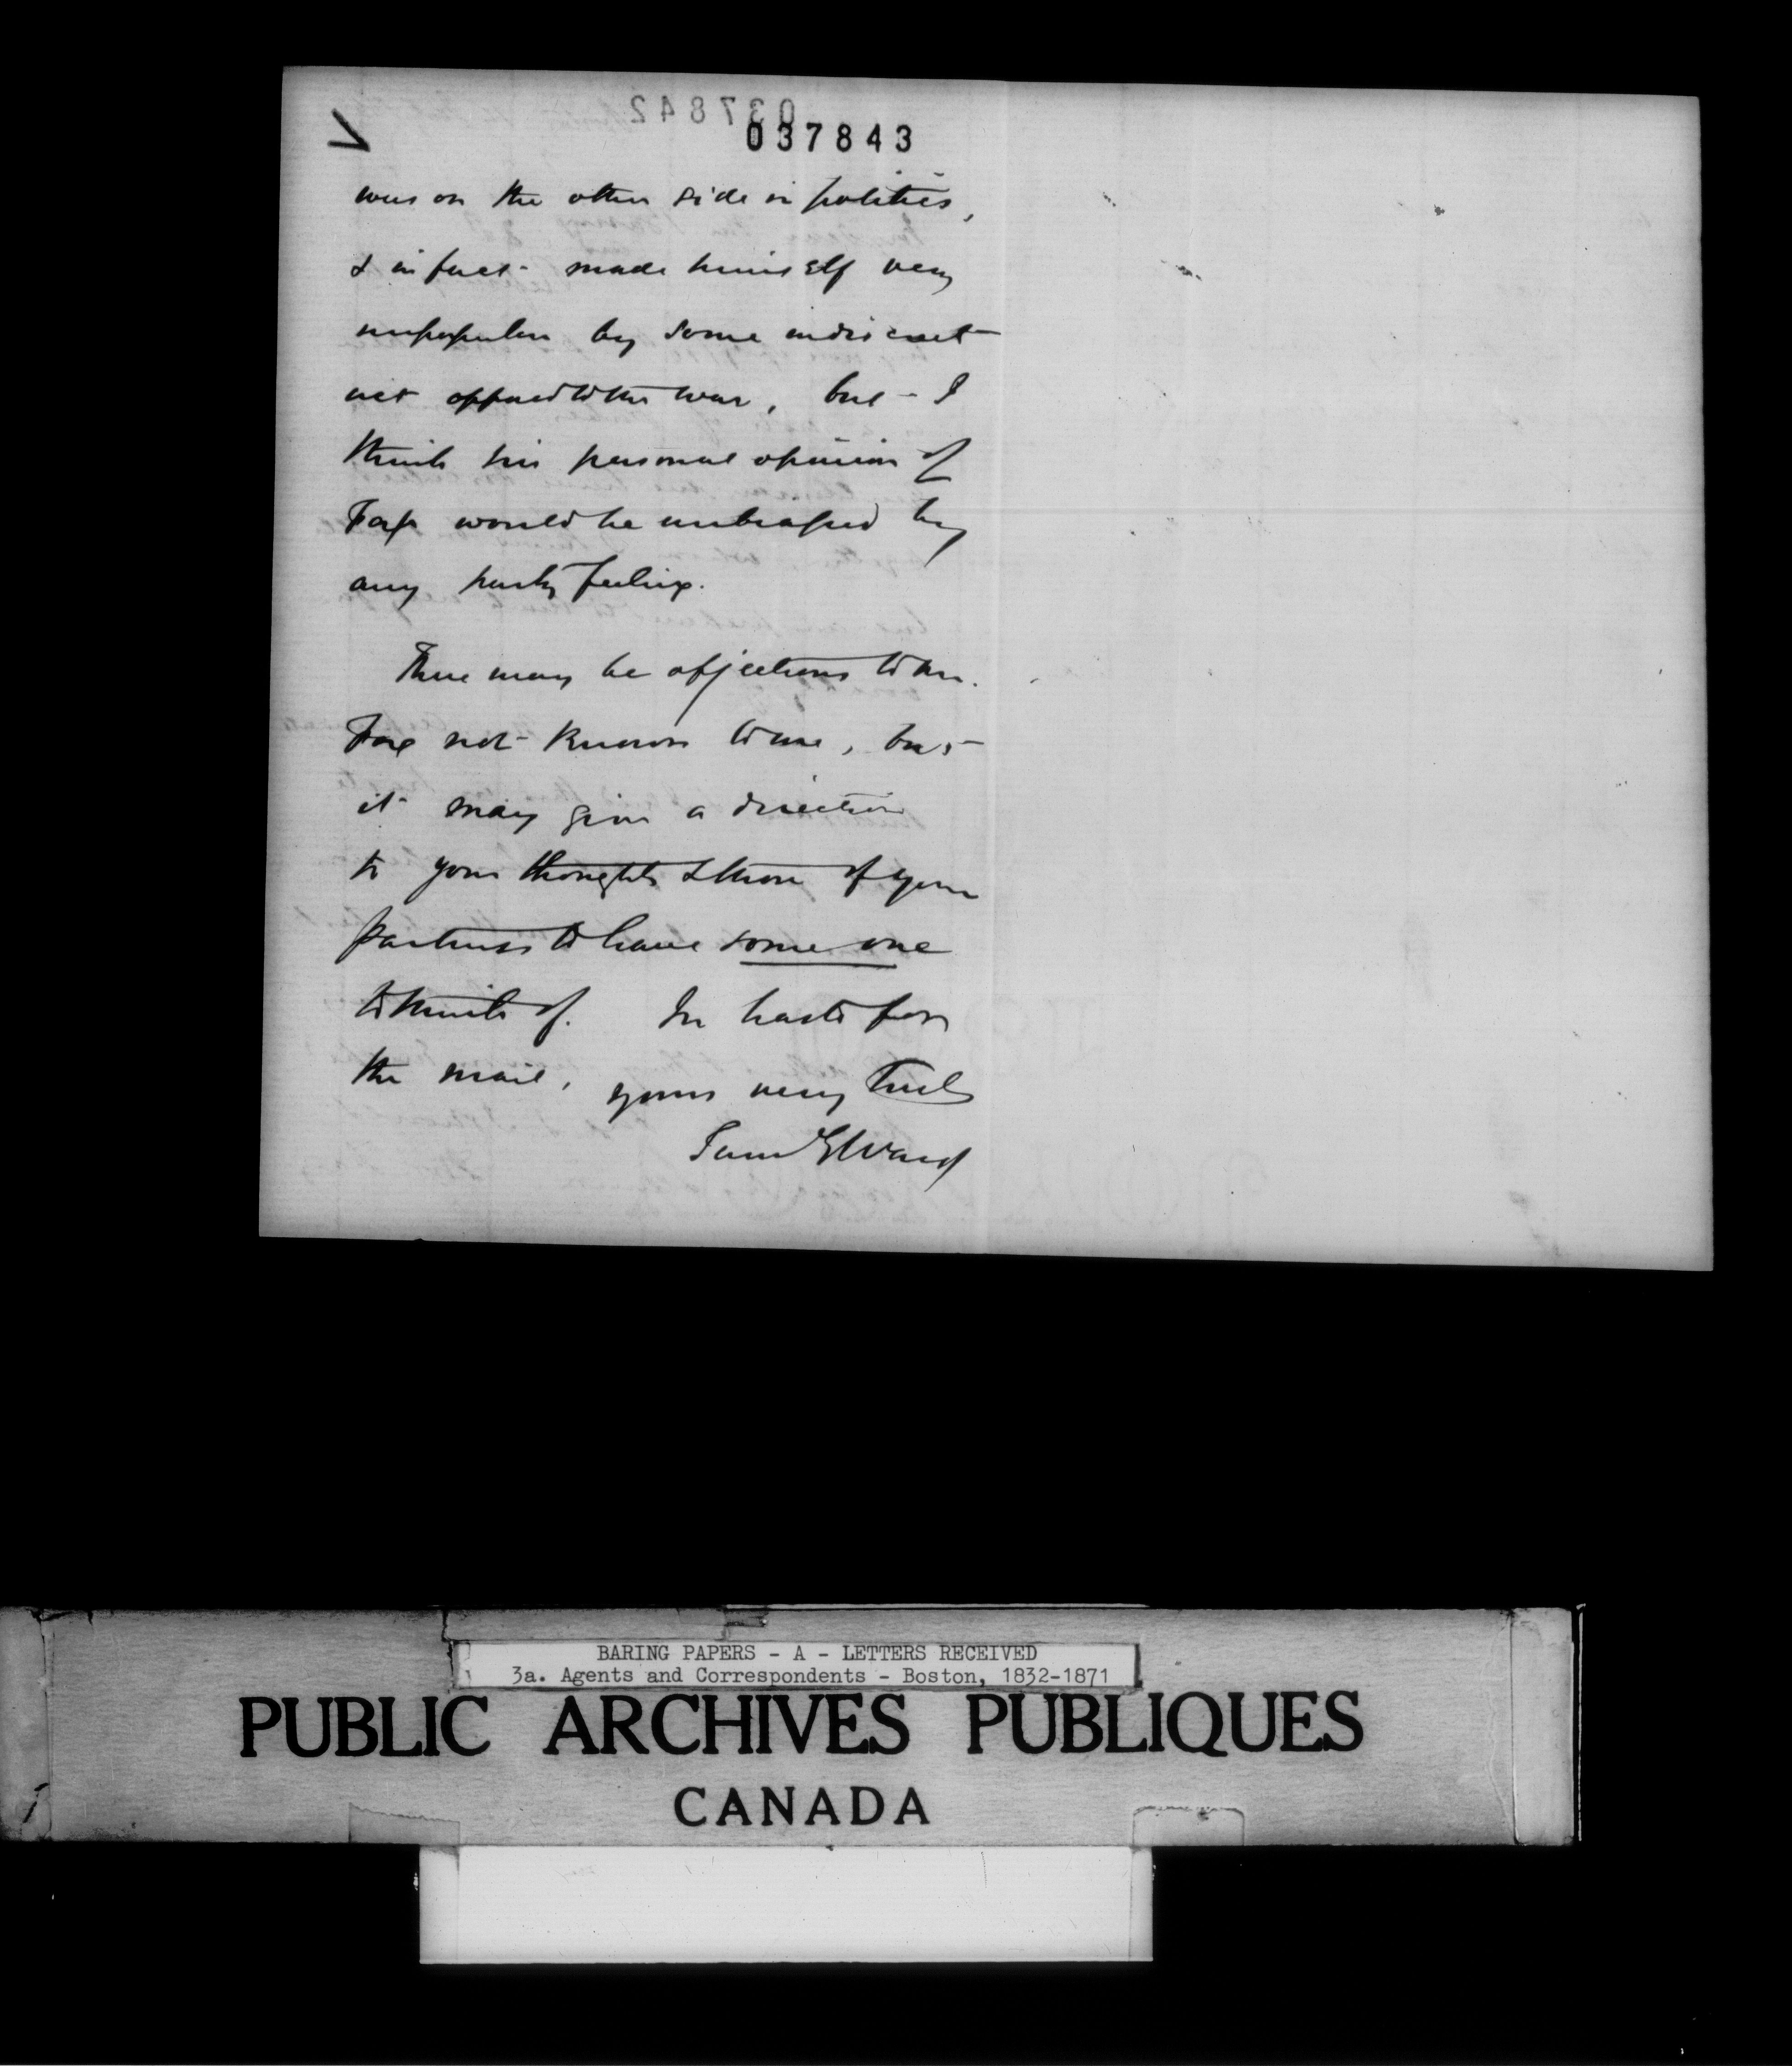 037842
037843
was on the other side in politics,
& in fact made himself very
unpopular by some indiscreet
act opposed to the war, but I
think his personal opinion of
Fox would be unbiassed by
any party feeling.
There may be objections to Mr.
Fox not known to me, but
it may give a direction
to your thoughts & those of your
partners to have some one
to think of. In haste for
the mail, yours very truly
Sam G Ward
BARING PAPERS - A - LETTERS RECEIVED
3a. Agents and Correspondents - Boston, 1832-1871
PUBLIC ARCHIVES PUBLIQUES
CANADA